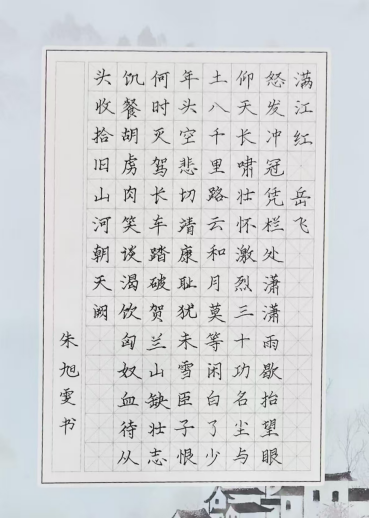 满江红 岳飞
怒发冲冠凭栏处潇潇雨歇抬望眼
仰天长啸壮怀激烈三十功名尘与
土八千里路云和月莫等闲白了少
年头空悲切靖康耻犹未雪臣子恨
何时灭驾长车踏破贺兰山缺壮志
饥餐胡虏肉笑谈渴饮匈奴血待从
头收拾旧山河朝天阙
朱旭雯书